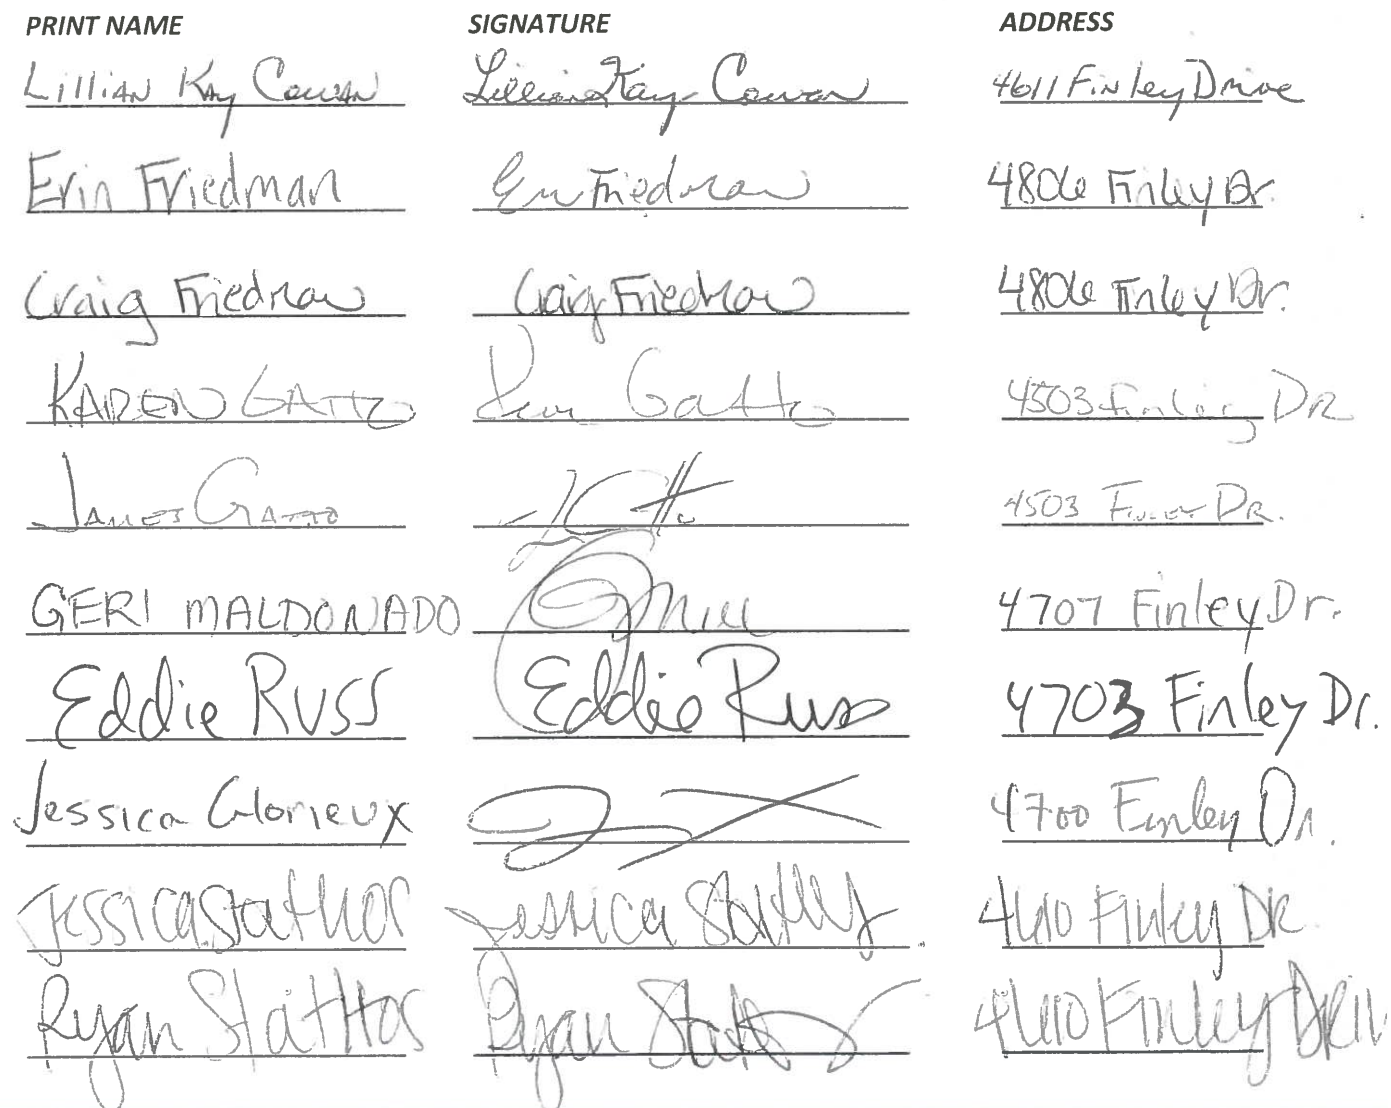 PRINT NAME SIGNATURE ADDRESS
Lillian Kay Cowan Lillian Kay Cowan 4611 Finley Drive
Erin Friedman Erin Friedman 4806 Finley Dr.
Craig Friedman Craig Friedman 4806 Finley Dr.
KAREN GATTO Gatto 4503 Finley DR
JAMES GATTO 4503 FINLEY DR.
GERI MALDONADO 4707 Finley Dr.
Eddie RUSS Eddie Russ 4703 Finley Dr.
Jessica Glorieux 4700 Finley Dr.
Jessica Stathos Jessica 4610 Finley DR
Ryan Stathos Ryan 4610 Finley DRIV